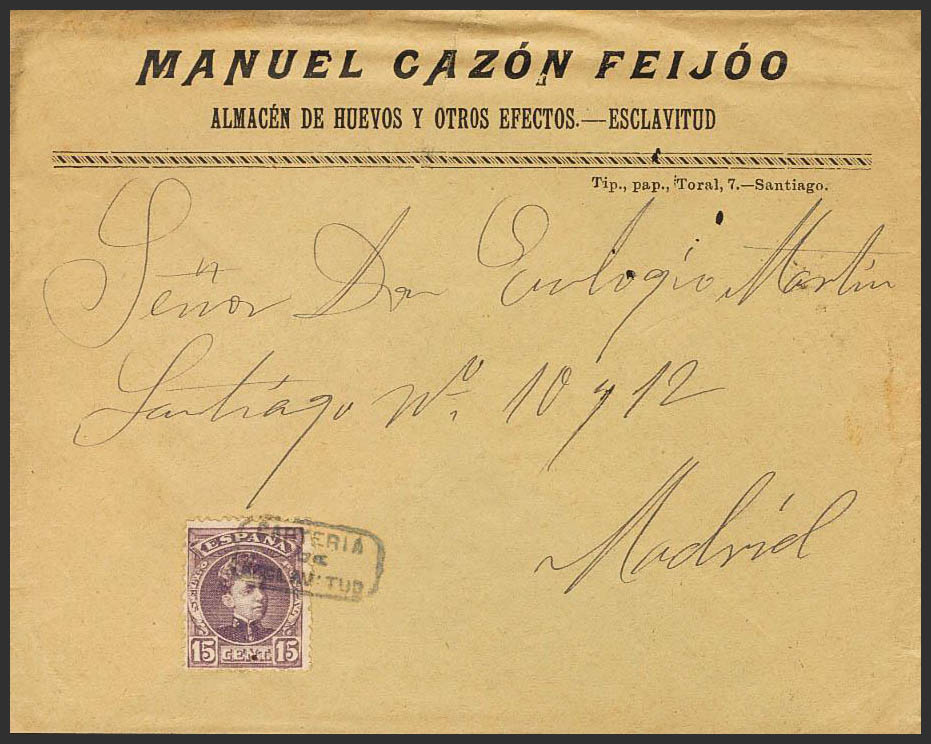 MANUEL CAZÓN FEIJÓO
ALMACÉN DE HUEVOS Y OTROS EFECTOS.—ESCLAVITUD
Tip., pap., Toral, 7.—Santiago.
Señor Don Eulogio Martín
Santiago Nº. 10 y 12
Madrid
CARTERIA
DE
ESCLAVITUD
ESPAÑA
15 CENT. 15